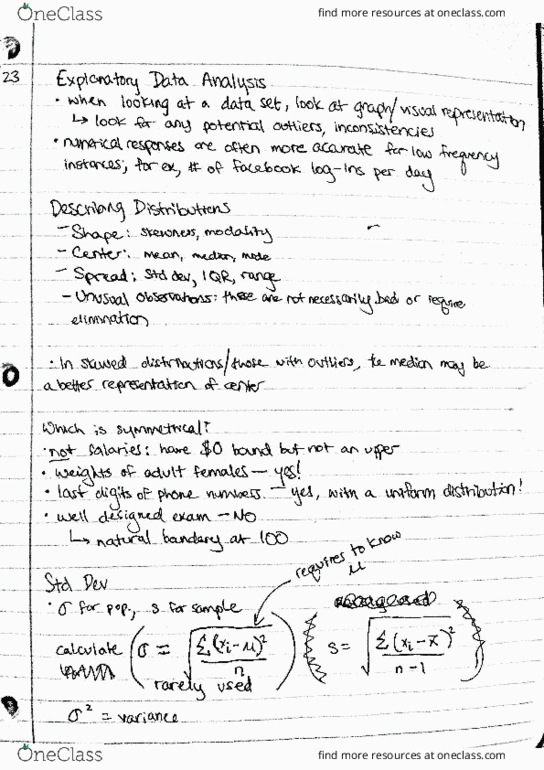 OneClass find more resources at oneclass.com
23 Explanatory Data Analysis
• when looking at a data set, look at graph/visual representation
↳ look for any potential outliers, inconsistencies
• numerical responses are often more acurate for low frequency
instances, for ex, # of facebook log-ins per day
Describing Distributions
- Shape: skewness, modality
- Center: mean, median, mode
- Spread: Std dev, IQR, range
- Unusual observations: these are not necessarily bad or require
elimination
• In skewed distributions/those with outliers, the median may be
a better representation of center
Which is symmetrical?
• not salaries: have $0 bound but not an upper
• weights of adult females - yes!
• last digits of phone numbers. - yes, with a uniform distribution!
• well designed exam - NO
↳ natural bandary at 100
requires to know
μ
Std Dev
• σ for pop., s for sample
calculate (σ = √(Σ(xi-μ)²/n)) s = √(Σ(xi-x̄)²/n-1)
rarely used
σ² = variance
OneClass find more resources at oneclass.com